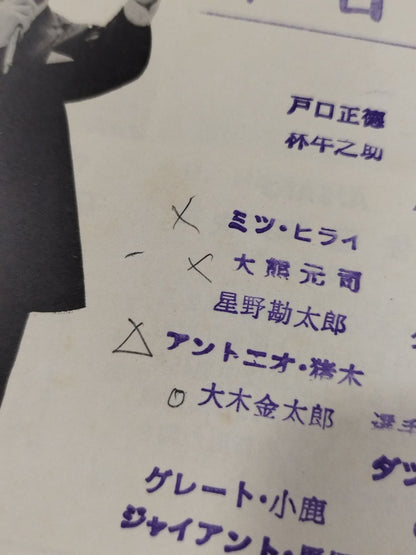 日
戸口正徳
林牛之助
ミツ・ヒライ
大熊元司
星野勘太郎
アントニオ・猪木
大木金太郎
選手
ダツ
グレート・小鹿
ジャイアント・